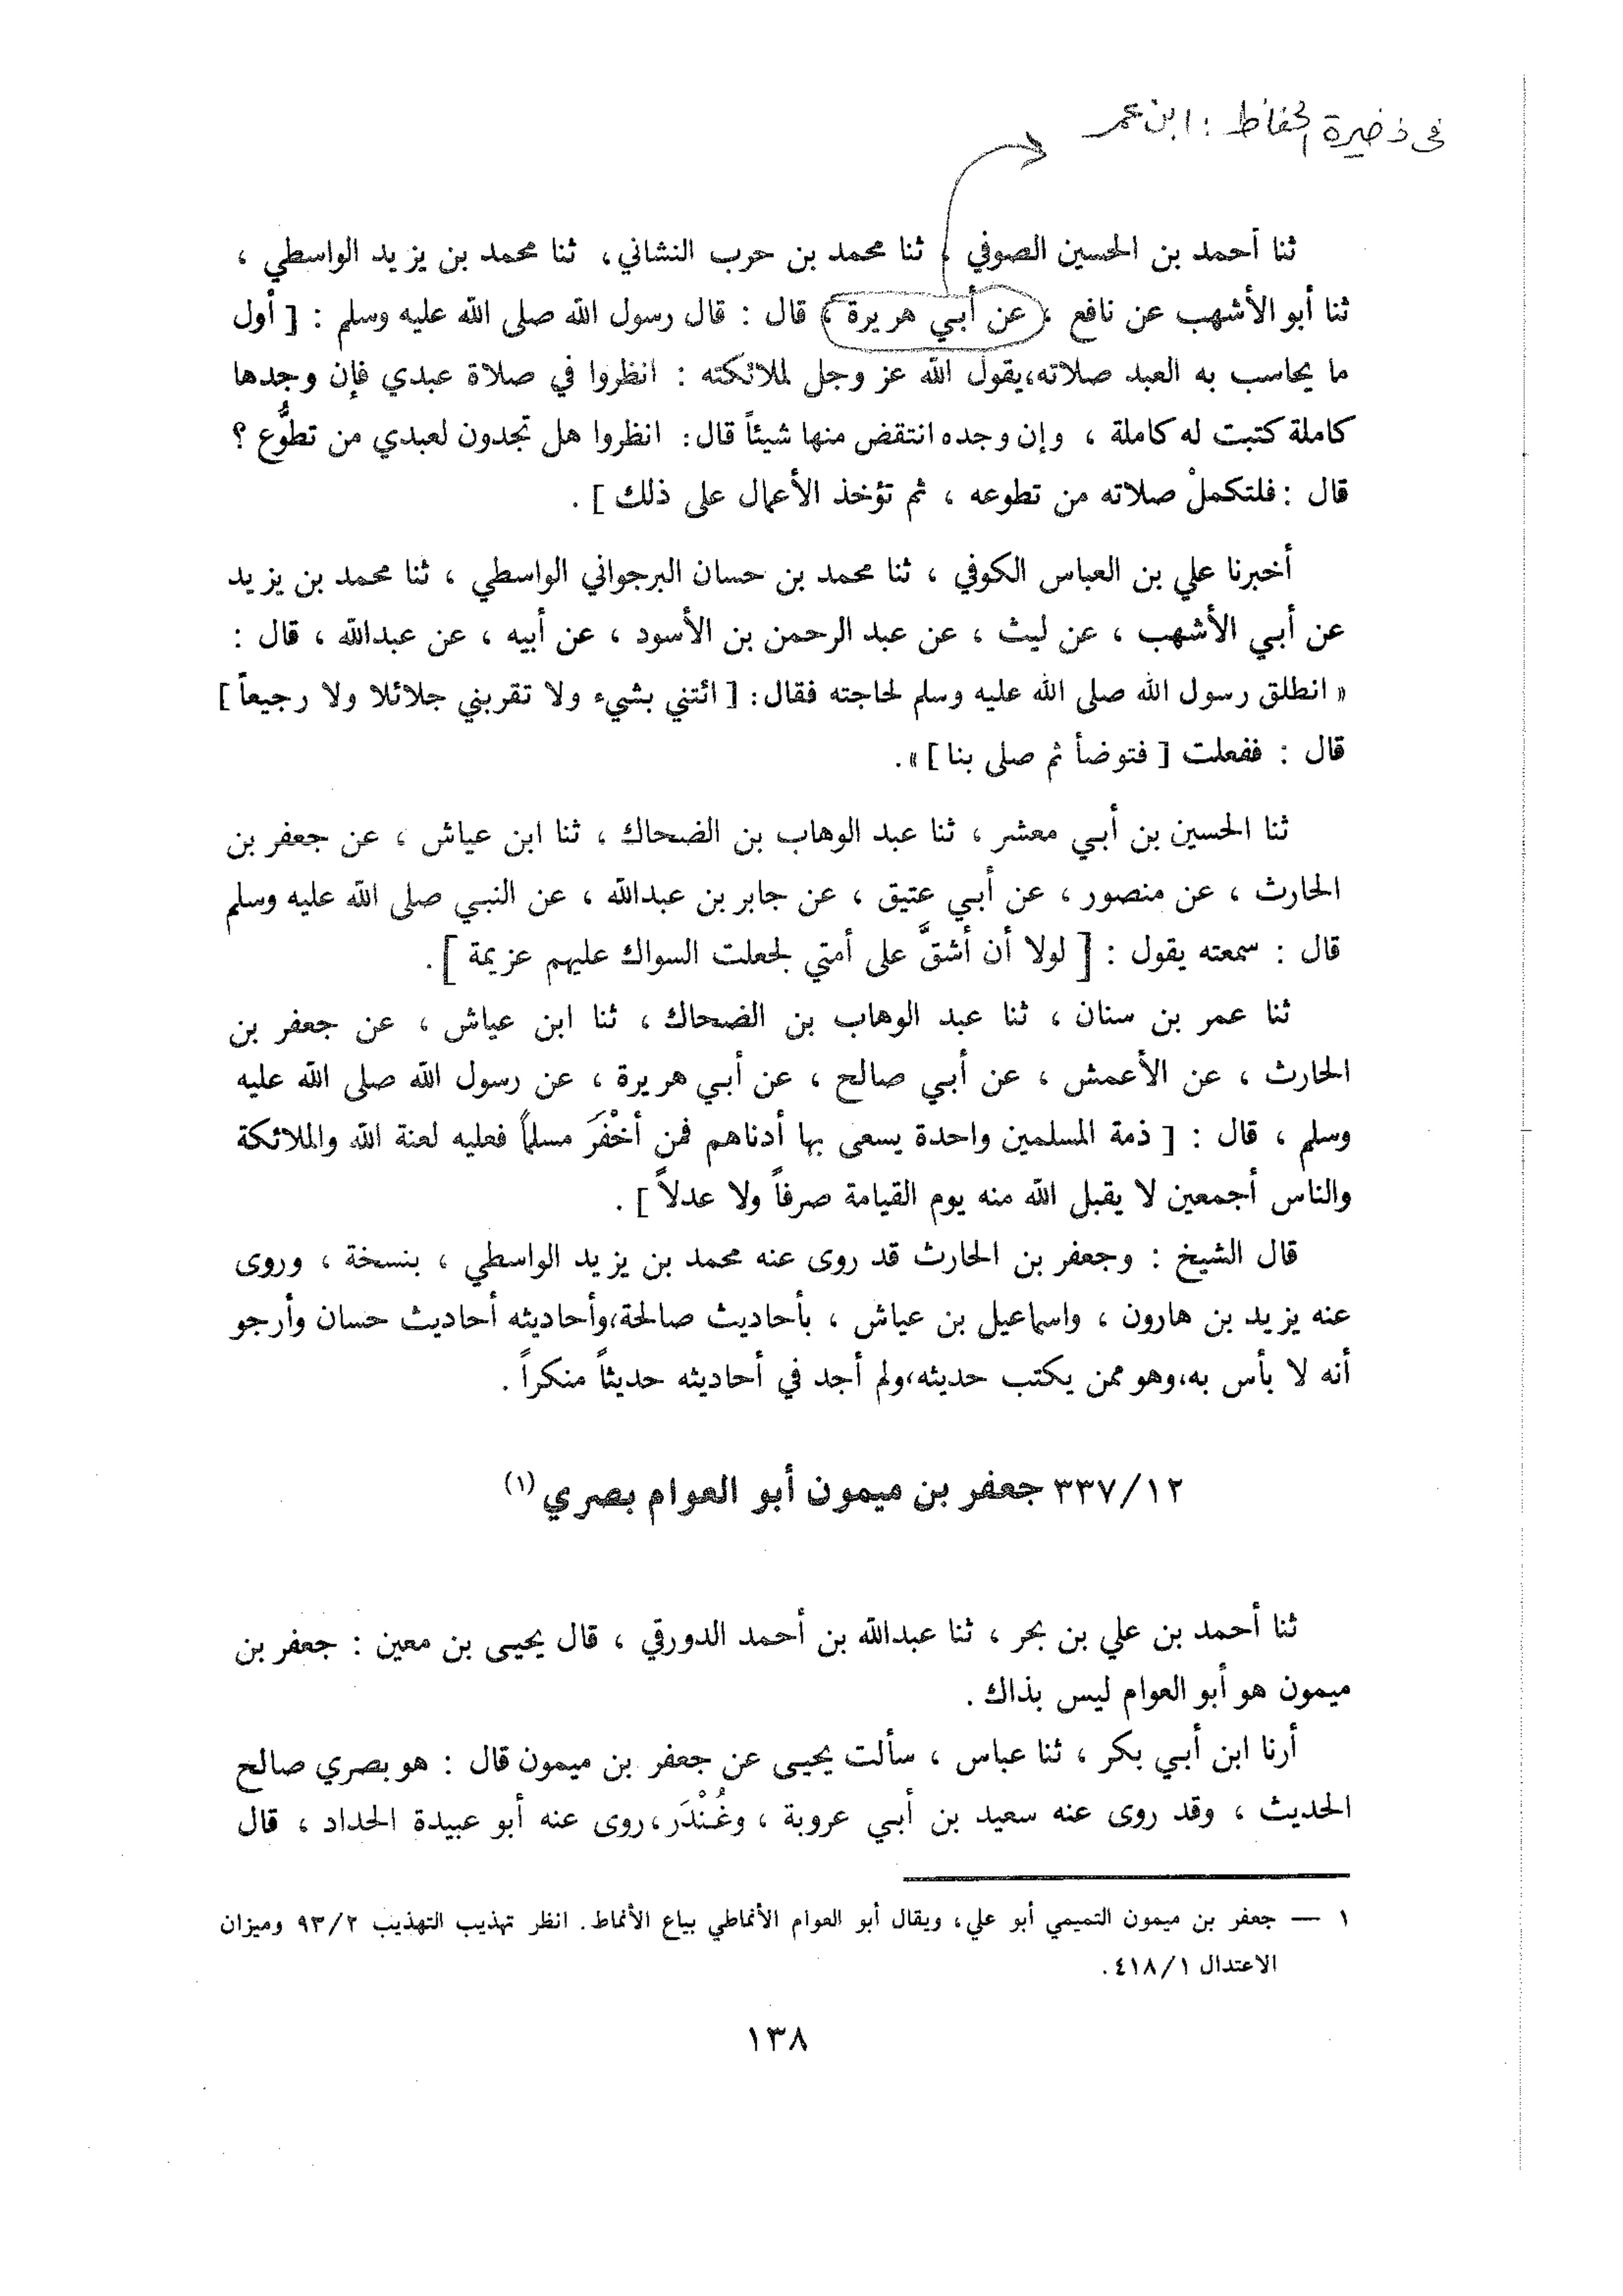 في ذخيرة الحفاظ : ابن عمر
ثنا أحمد بن الحسين الصوفي ، ثنا محمد بن حرب النشاني، ثنا محمد بن يزيد الواسطي ،
ثنا أبو الأشهب عن نافع ، عن أبي هريرة ، قال : قال رسول الله صلى الله عليه وسلم : [ أول
ما يحاسب به العبد صلاته،يقول الله عز وجل لملائكته : انظروا في صلاة عبدي فإن وجدها
كاملة كتبت له كاملة ، وإن وجده انتقض منها شيئاً قال: انظروا هل تجدون لعبدي من تطوُّع ؟
قال : فلتكملْ صلاته من تطوعه ، ثم تؤخذ الأعمال على ذلك ] .
أخبرنا علي بن العباس الكوفي ، ثنا محمد بن حسان البرجواني الواسطي ، ثنا محمد بن يزيد
عن أبي الأشهب ، عن ليث ، عن عبد الرحمن بن الأسود ، عن أبيه ، عن عبدالله ، قال :
« انطلق رسول الله صلى الله عليه وسلم لحاجته فقال: [ ائتني بشيء ولا تقربني جلائلا ولا رجيعاً ]
قال : ففعلت [ فتوضأ ثم صلى بنا ] ».
ثنا الحسين بن أبي معشر ، ثنا عبد الوهاب بن الضحاك ، ثنا ابن عياش ، عن جعفر بن
الحارث ، عن منصور ، عن أبي عتيق ، عن جابر بن عبدالله ، عن النبي صلى الله عليه وسلم
قال : سمعته يقول : [ لولا أن أشقَّ على أمتي لجعلت السواك عليهم عزيمة ] .
ثنا عمر بن سنان ، ثنا عبد الوهاب بن الضحاك ، ثنا ابن عياش ، عن جعفر بن
الحارث ، عن الأعمش ، عن أبي صالح ، عن أبي هريرة ، عن رسول الله صلى الله عليه
وسلم ، قال : [ ذمة المسلمين واحدة يسعى بها أدناهم فمن أخْفَرَ مسلماً فعليه لعنة الله والملائكة
والناس أجمعين لا يقبل الله منه يوم القيامة صرفاً ولا عدلاً ] .
قال الشيخ : وجعفر بن الحارث قد روى عنه محمد بن يزيد الواسطي ، بنسخة ، وروى
عنه يزيد بن هارون ، واسماعيل بن عياش ، بأحاديث صالحة،وأحاديثه أحاديث حسان وأرجو
أنه لا بأس به،وهو ممن يكتب حديثه،ولم أجد في أحاديثه حديثاً منكراً .
٣٣٧/١٢ جعفر بن ميمون أبو العوام بصري (١)
ثنا أحمد بن علي بن بحر ، ثنا عبدالله بن أحمد الدورقي ، قال يحيى بن معين : جعفر بن
ميمون هو أبو العوام ليس بذاك .
أرنا ابن أبي بكر ، ثنا عباس ، سألت يحيى عن جعفر بن ميمون قال : هو بصري صالح
الحديث ، وقد روى عنه سعيد بن أبي عروبة ، وغُنْدَر،روى عنه أبو عبيدة الحداد ، قال
١ — جعفر بن ميمون التميمي أبو علي، ويقال أبو العوام الأنماطي بياع الأنماط. انظر تهذيب التهذيب ٩٣/٢ وميزان
الاعتدال ٤١٨/١.
١٣٨